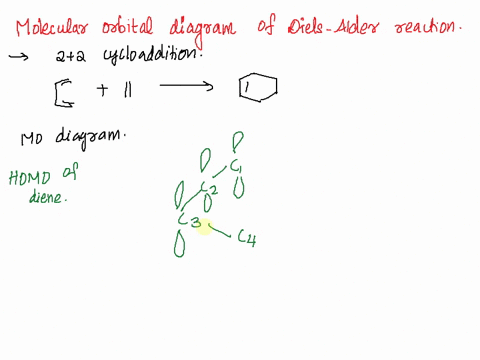 Molecular orbital diagram of Diels-Alder reaction.
→ 2+2 cycloaddition.
+ || →
MO diagram.
HOMO of
diene.
C1
C2
C3
C4